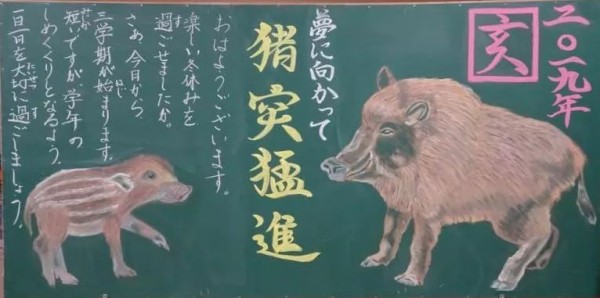 二〇一九年
亥
夢に向かって
猪突猛進
おはようございます。
楽しい冬休みを
過ごせましたか。
さあ、今日から
三学期が始まります。
短いですが、学年の
しめくくりとなるよう、
一日一日を大切に過ごしましょう。